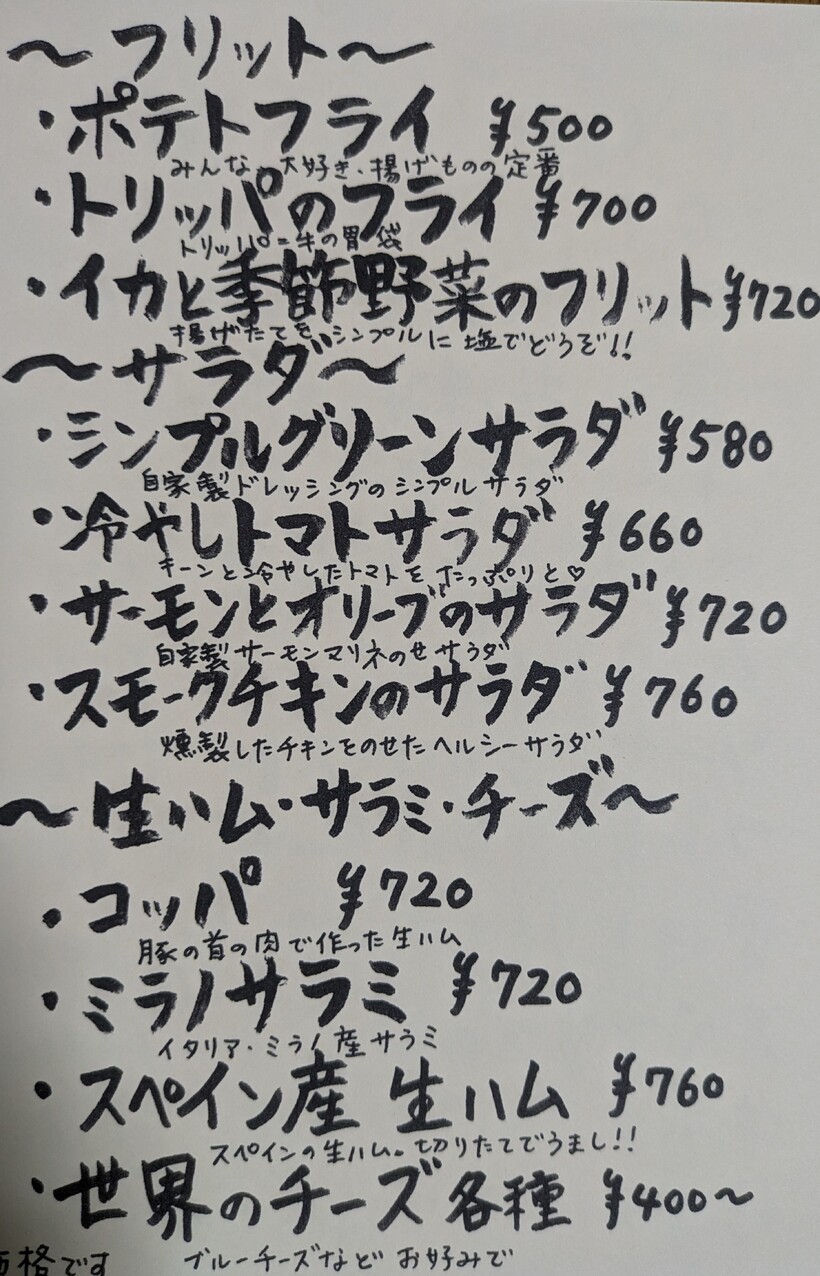 ～フリット～
・ポテトフライ ¥500
みんな、大好き・揚げものの定番
・トリッパのフライ ¥700
トリッパ=牛の胃袋
・イカと季節野菜のフリット ¥720
揚げたてをシンプルに塩でどうぞ!!
～サラダ～
・シンプルグリーンサラダ ¥580
自家製ドレッシングのシンプルサラダ
・冷やしトマトサラダ ¥660
キーンと冷やしたトマトをたっぷりと♡
・サーモンとオリーブのサラダ ¥720
自家製サーモンマリネのせサラダ
・スモークチキンのサラダ ¥760
燻製したチキンをのせたヘルシーサラダ
～生ハム・サラミ・チーズ～
・コッパ ¥720
豚の首の肉で作った生ハム
・ミラノサラミ ¥720
イタリア・ミラノ産サラミ
・スペイン産 生ハム ¥760
スペインの生ハム。切りたてでうまし!!
・世界のチーズ各種 ¥400～
ブルーチーズなど お好みで
価格です